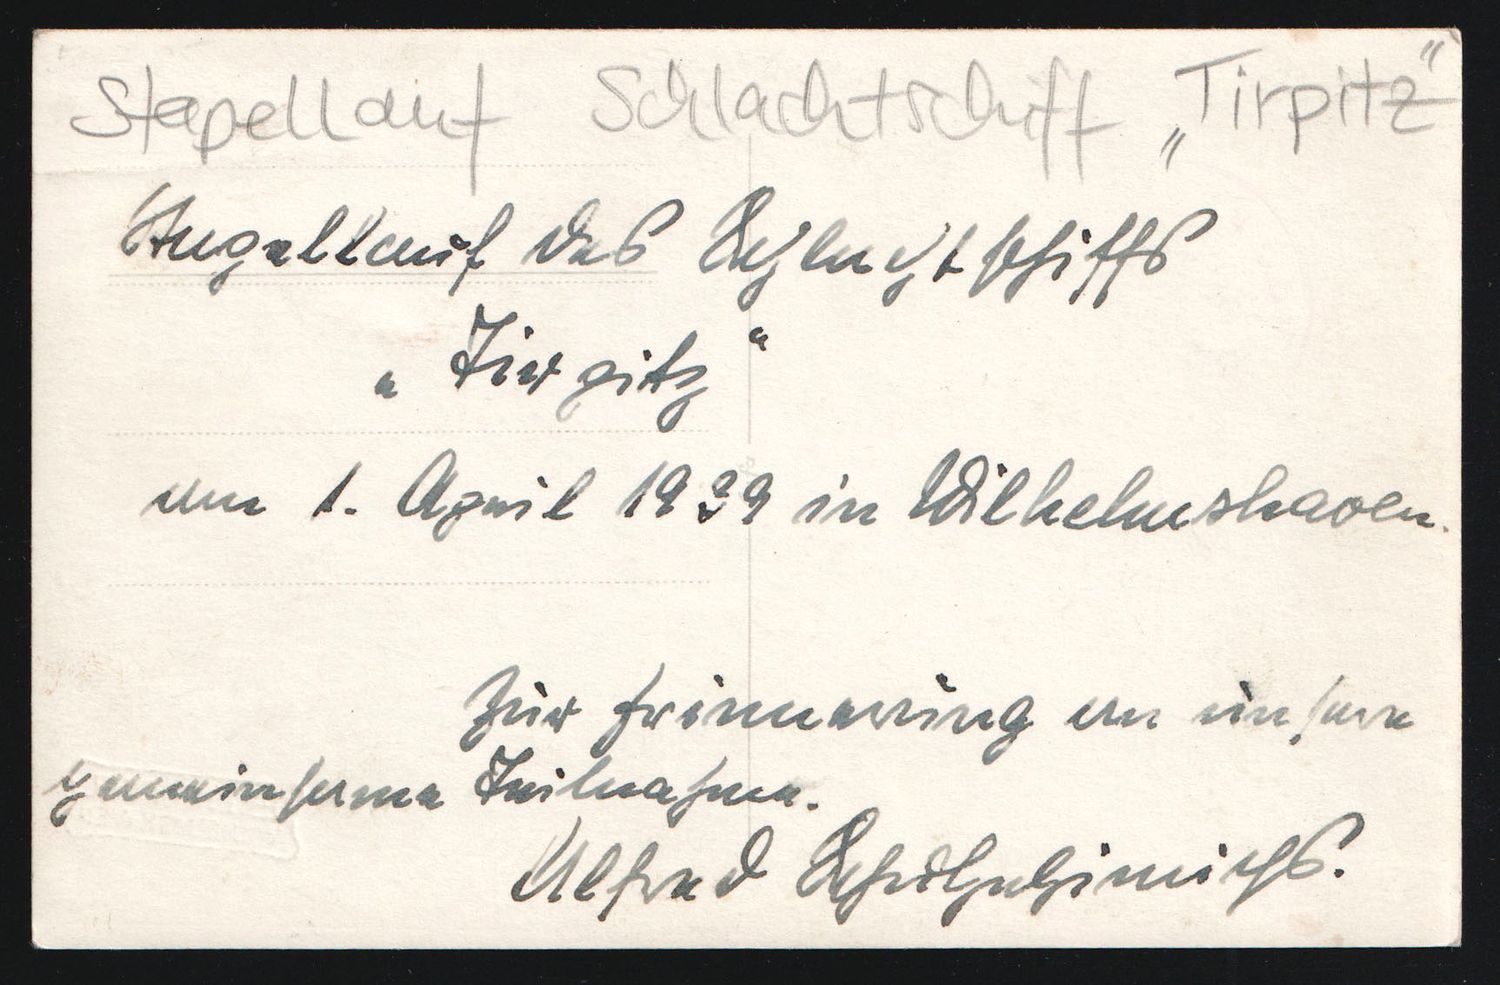 Stapellauf Schlachtschiff „Tirpitz“
Stapellauf des Schlachtschiffs
„Tirpitz“
am 1. April 1939 in Wilhelmshaven.
Zur Erinnerung an unsere
gemeinsame Teilnahme.
Alfred